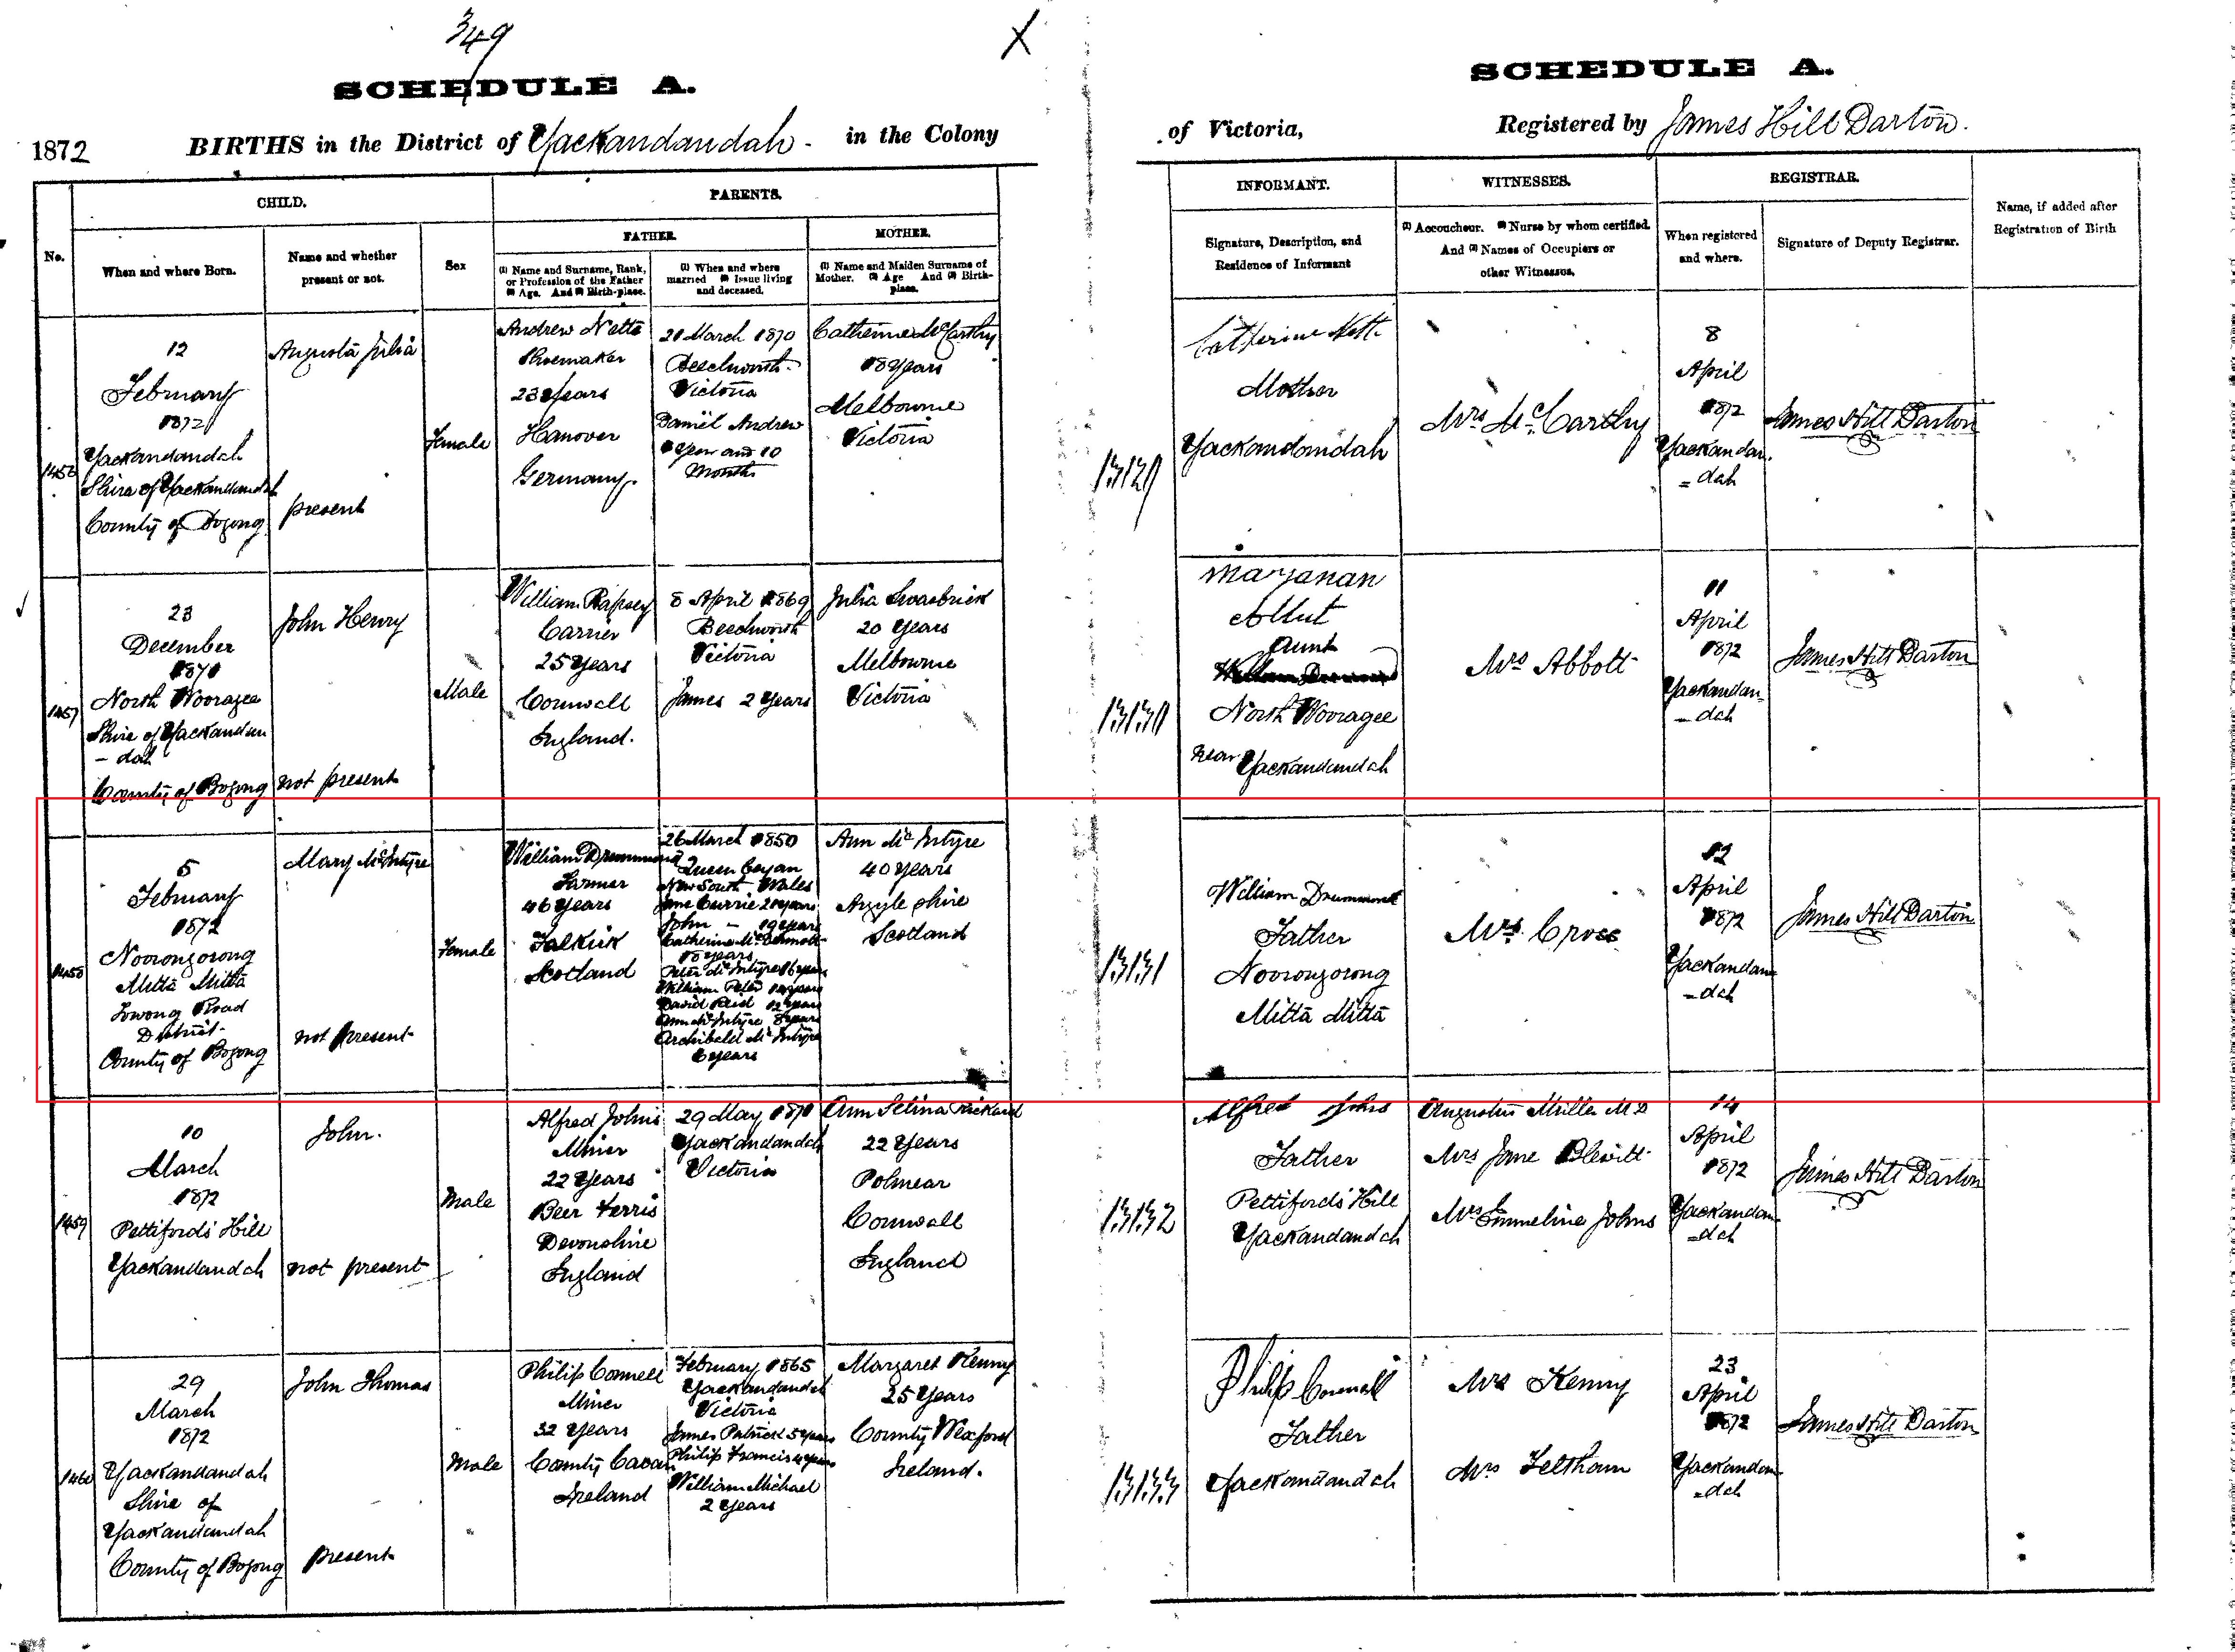 349
SCHEDULE A.
1872 BIRTHS in the District of Yackandandah - in the Colony
CHILD.
PARENTS.
No.
When and where Born.
Name and whether
present or not.
Sex
FATHER.
MOTHER.
(1) Name and Surname, Rank,
or Profession of the Father
(2) Age. And (3) Birth-place.
(1) When and where
married (2) Issue living
and deceased.
(1) Name and Maiden Surname of
Mother. (2) Age And (3) Birth-
place.
1456
12
February
1872
Yackandandah
Shire of Yackandandah
County of Bogong
Augusta Julia
present
Female
Andrew Nette
Shoemaker
23 Years
Hanover
Germany.
21 March 1870
Beechworth
Victoria
Daniel Andrew
1 Year and 10
Months
Catherine McCarthy
18 Years
Melbourne
Victoria
1457
23
December
1870
North Wooragee
Shire of Yackandan
- dah
County of Bogong
John Henry
not present
Male
William Rapsey
Carrier
25 Years
Cornwall
England.
8 April 1869
Beechworth
Victoria
James 2 Years
Julia Swasbrick
20 Years
Melbourne
Victoria
1458
5
February
1872
Noorongorong
Mitta Mitta
Towong Road
District
County of Bogong
Mary McIntyre
not present
Female
William Drummond
Farmer
46 Years
Falkirk
Scotland
26 March 1850
Queenbeyan
New South Wales
Jane Currie 20 years
John - 19 years
Catherine McDermott
18 years
Peter McIntyre 16 years
William Peter 14 years
David Reid 12 years
Ann McIntyre 8 years
Archibald McIntyre
6 years
Ann McIntyre
40 years
Argyle shire
Scotland
1459
10
March
1872
Pettifords Hill
Yackandandah
John.
not present
Male
Alfred Johns
Miner
22 Years
Beer Ferris
Devonshire
England
29 May, 1871
Yackandandah
Victoria
Ann Selina Rickard
22 Years
Polmear
Cornwall
England
1460
29
March
1872
Yackandandah
Shire of
Yackandandah
County of Bogong
John Thomas
present
Male
Philip Connell
Miner
32 Years
County Cavan
Ireland
February 1865
Yackandandah
Victoria
James Patrick 5 years
Philip Francis 4 years
William Michael
2 Years
Margaret Kenny
25 Years
County Wexford
Ireland.
SCHEDULE A.
of Victoria, Registered by James Hill Darton.
INFORMANT.
WITNESSES.
REGISTRAR.
Signature, Description, and
Residence of Informant
(1) Accoucheur. (2) Nurse by whom certified.
And (3) Names of Occupiers or
other Witnesses.
When registered
and where.
Signature of Deputy Registrar.
Name, if added after
Registration of Birth
13129
Catherine Nette
Mother
Yackandandah
Mrs McCarthy
8
April
1872
Yackandan
= dah
James Hill Darton
13130
Maryanan
Abbut
Aunt
North Wooragee
near Yackandandah
Mrs Abbott
11
April
1872
Yackandan
- dah
James Hill Darton
13131
William Drummond
Father
Noorongorong
Mitta Mitta
Mrs Cross
12
April
1872
Yackandan
- dah
James Hill Darton
13132
Alfred Johns
Father
Pettifords Hill
Yackandandah
Augustus Müller M D
Mrs Jane Blewitt
Mrs Emmeline Johns
14
April
1872
Yackandan
= dah
James Hill Darton
13133
Philip Connell
Father
Yackandandah
Mrs Kenny
Mrs Feltham
23
April
1872
Yackandan
= dah
James Hill Darton